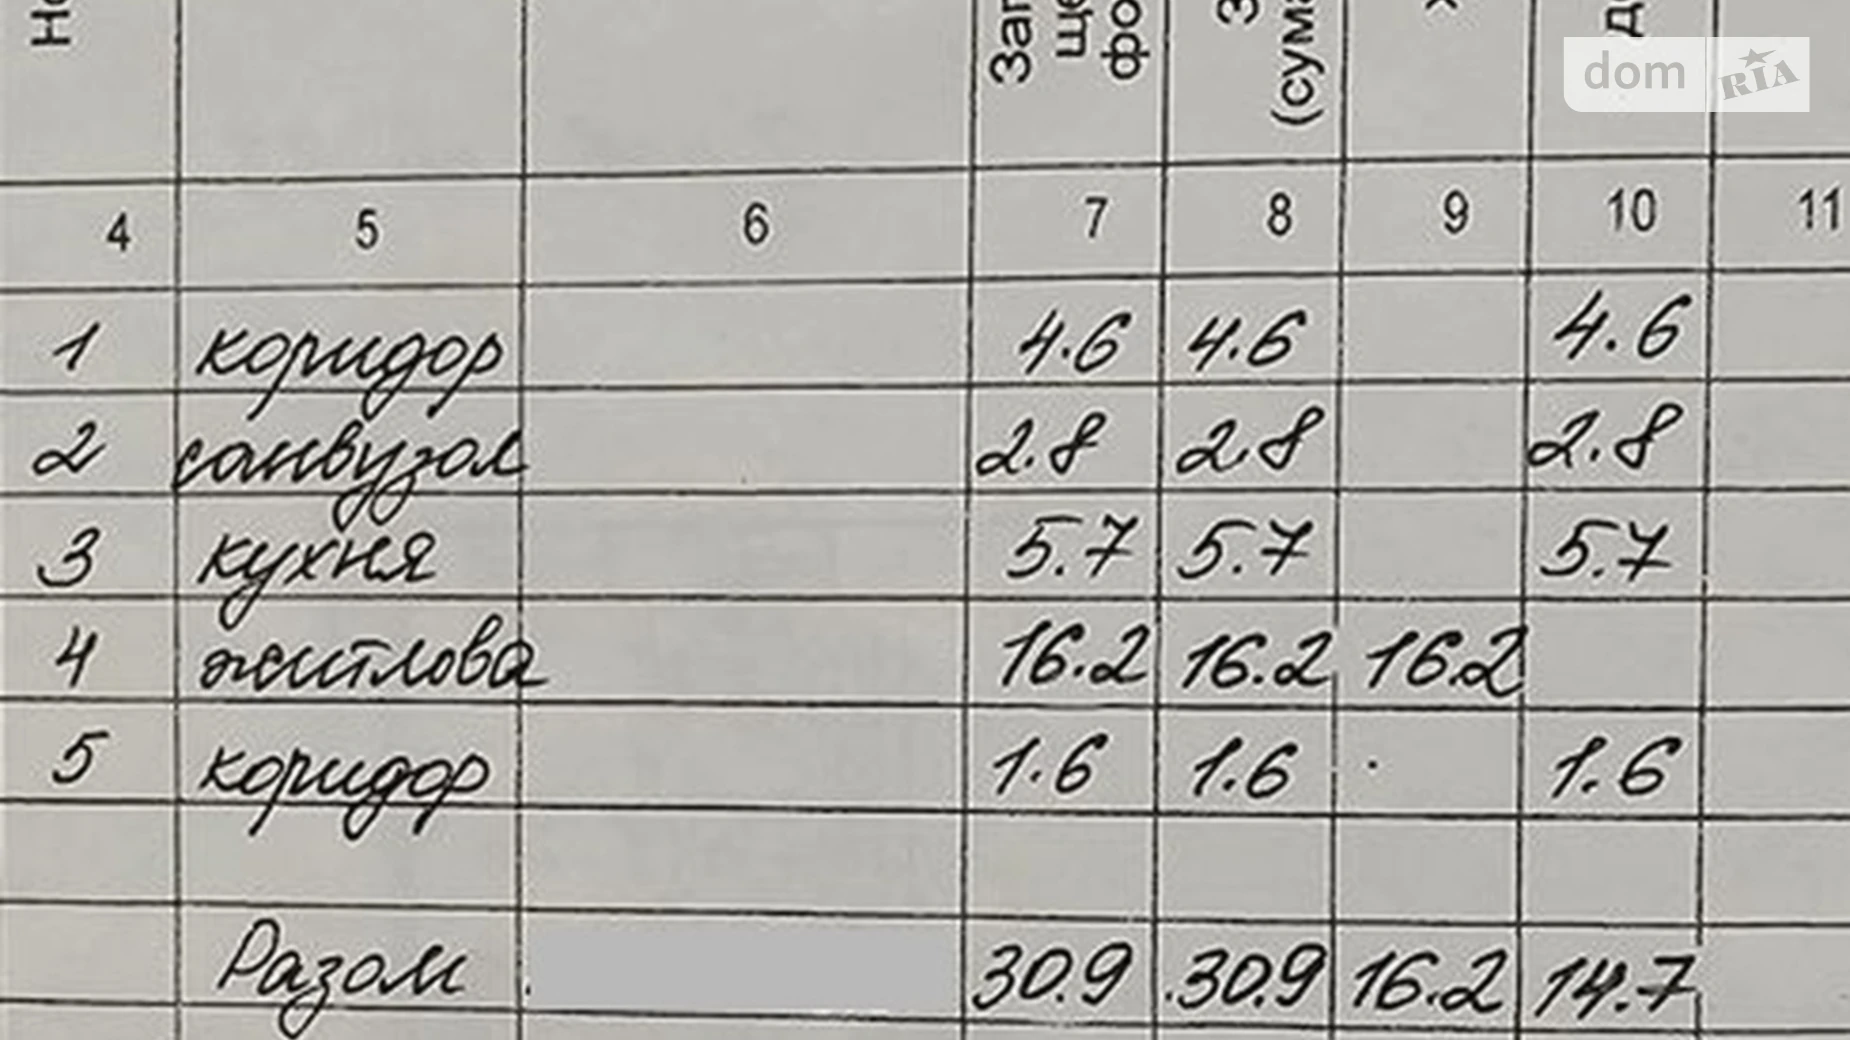 dom RIA
4 5 6 7 8 9 10 11
1 коридор 4.6 4.6 4.6
2 санвузол 2.8 2.8 2.8
3 кухня 5.7 5.7 5.7
4 житлова 16.2 16.2 16.2
5 коридор 1.6 1.6 1.6
Разом 30.9 30.9 16.2 14.7